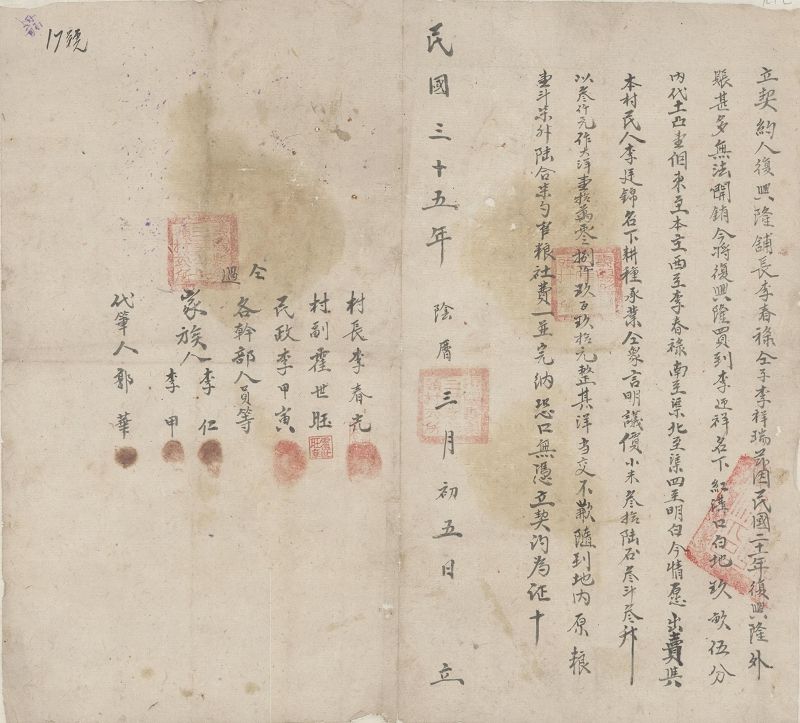 立契約人復興隆舖長李春祿仝子李祥瑞茲因民國二十一年復興隆外
賬甚多無法開銷今將復興隆買到李迎祥名下紅溝口白地玖畝伍分
內代土凸壹佃東至本主西至李春祿南至渠北至渠四至明白今情愿出賣與
本村民人李廷錦名下耕種承業仝眾言明議價小米叁拾陸石叁斗叁升
以叁仟元作大洋壹拾萬零捌仟玖百玖拾元整其洋當交不歉隨到地內原粮
壹斗柒升陸合柒勺官粮社費一並完納恐口無憑立契約為証十
民國三十五年陰曆三月初五日立
仝過
村長李春光
村副霍世旺
民政李甲寅
各幹部人員等
家族人李仁
李甲
代筆人郭華
17號